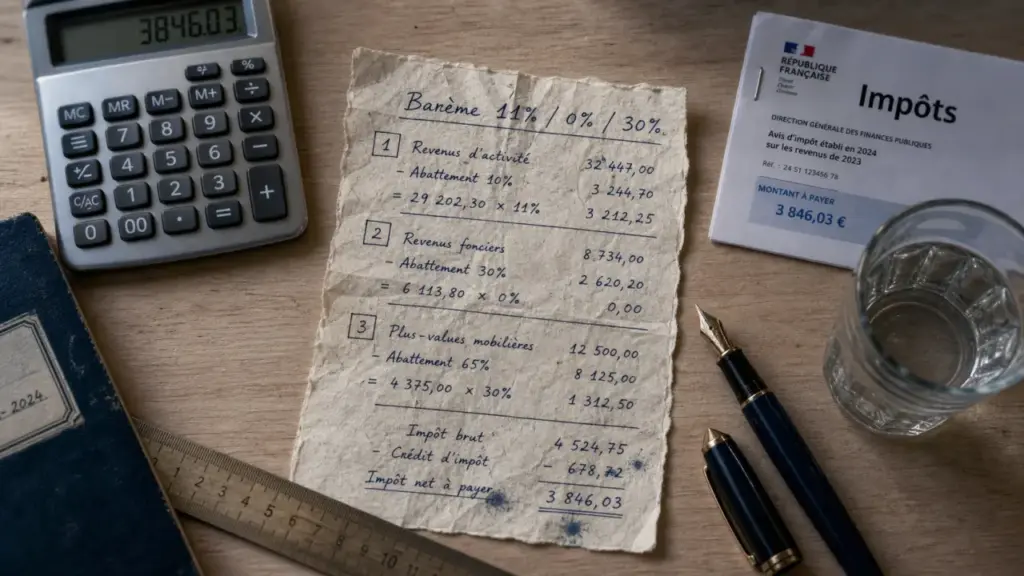 3846.03
MC MR M- M+ ÷
%
7 8 9 ×
4 5 6 −
C/AC 1 2 3 +
0 00 · =
2024
1 2 3 4 5 6 7 8 9 10 11
Barème 11% / 0% / 30%
1 Revenus d'activité 32 447,00
- Abattement 10% 3 244,70
= 29 202,30 × 11% 3 212,25
2 Revenus fonciers 8.734,00
- Abattement 30% 2 620,20
= 6 113,80 × 0% 0,00
3 Plus-values mobilières 12 500,00
- Abattement 65% 8 125,00
= 4 375,00 × 30% 1 312,50
Impôt brut 4 524,75
- Crédit d'impôt - 678,72
Impôt net à payer 3 846,03
RÉPUBLIQUE
FRANÇAISE
Impôts
DIRECTION GÉNÉRALE DES FINANCES PUBLIQUES
Avis d'impôt établi en 2024
sur les revenus de 2023
Réf. : 24 51 123456 78
MONTANT À PAYER
3 846,03 €